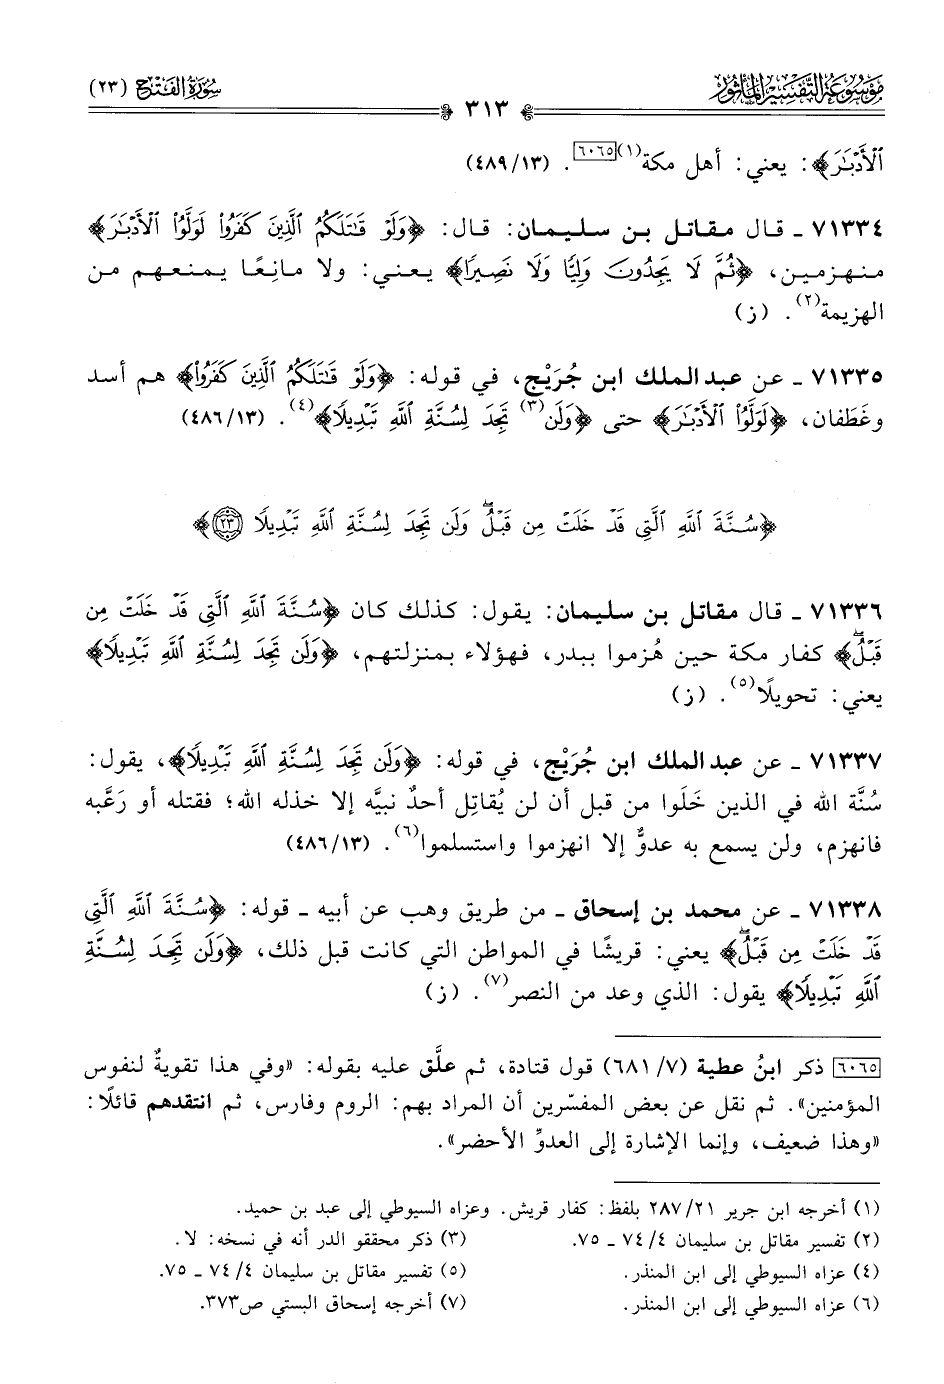 مَوْسُوعَة التَّفْسِير المَأْثُور
٣١٣
سُورَة الفَتْح (٢٣)
ٱلْأَدْبَٰرَ﴾: يعني: أهل مكة(١)[٦٠٦٥]. (٤٨٩/١٣)
٧١٣٣٤ ـ قال مقاتل بن سليمان: قال: ﴿وَلَوْ قَٰتَلَكُمُ ٱلَّذِينَ كَفَرُوا۟ لَوَلَّوُا۟ ٱلْأَدْبَٰرَ﴾
منهزمين، ﴿ثُمَّ لَا يَجِدُونَ وَلِيًّا وَلَا نَصِيرًا﴾ يعني: ولا مانِعًا يمنعهم من
الهزيمة(٢). (ز)
٧١٣٣٥ ـ عن عبد الملك ابن جُرَيْج، في قوله: ﴿وَلَوْ قَٰتَلَكُمُ ٱلَّذِينَ كَفَرُوا۟﴾ هم أسد
وغَطَفان، ﴿لَوَلَّوُا۟ ٱلْأَدْبَٰرَ﴾ حتى ﴿وَلَن(٣) تَجِدَ لِسُنَّةِ ٱللَّهِ تَبْدِيلًا﴾(٤). (٤٨٦/١٣)
﴿سُنَّةَ ٱللَّهِ ٱلَّتِى قَدْ خَلَتْ مِن قَبْلُۖ وَلَن تَجِدَ لِسُنَّةِ ٱللَّهِ تَبْدِيلًا ٢٣﴾
٧١٣٣٦ ـ قال مقاتل بن سليمان: يقول: كذلك كان ﴿سُنَّةَ ٱللَّهِ ٱلَّتِى قَدْ خَلَتْ مِن
قَبْلُۖ﴾ كفار مكة حين هُزموا ببدر، فهؤلاء بمنزلتهم، ﴿وَلَن تَجِدَ لِسُنَّةِ ٱللَّهِ تَبْدِيلًا﴾
يعني: تحويلًا(٥). (ز)
٧١٣٣٧ ـ عن عبد الملك ابن جُرَيْج، في قوله: ﴿وَلَن تَجِدَ لِسُنَّةِ ٱللَّهِ تَبْدِيلًا﴾، يقول:
سُنَّة الله في الذين خَلَوا من قبل أن لن يُقاتِل أحدٌ نبيَّه إلا خذله الله؛ فقتله أو رَعَّبه
فانهزم، ولن يسمع به عدوٌّ إلا انهزموا واستسلموا(٦). (٤٨٦/١٣)
٧١٣٣٨ ـ عن محمد بن إسحاق ـ من طريق وهب عن أبيه ـ قوله: ﴿سُنَّةَ ٱللَّهِ ٱلَّتِى
قَدْ خَلَتْ مِن قَبْلُۖ﴾ يعني: قريشًا في المواطن التي كانت قبل ذلك، ﴿وَلَن تَجِدَ لِسُنَّةِ
ٱللَّهِ تَبْدِيلًا﴾ يقول: الذي وعد من النصر(٧). (ز)
[٦٠٦٥] ذكر ابنُ عطية (٧/ ٦٨١) قول قتادة، ثم علَّق عليه بقوله: «وفي هذا تقويةٌ لنفوس
المؤمنين». ثم نقل عن بعض المفسّرين أن المراد بهم: الروم وفارس، ثم انتقدهم قائلًا:
«وهذا ضعيف، وإنما الإشارة إلى العدوِّ الأحضر».
(١) أخرجه ابن جرير ٢٨٧/٢١ بلفظ: كفار قريش. وعزاه السيوطي إلى عبد بن حميد.
(٢) تفسير مقاتل بن سليمان ٤/ ٧٤ ـ ٧٥.
(٣) ذكر محققو الدر أنه في نسخه: لا.
(٤) عزاه السيوطي إلى ابن المنذر.
(٥) تفسير مقاتل بن سليمان ٤/ ٧٤ ـ ٧٥.
(٦) عزاه السيوطي إلى ابن المنذر.
(٧) أخرجه إسحاق البستي ص٣٧٣.